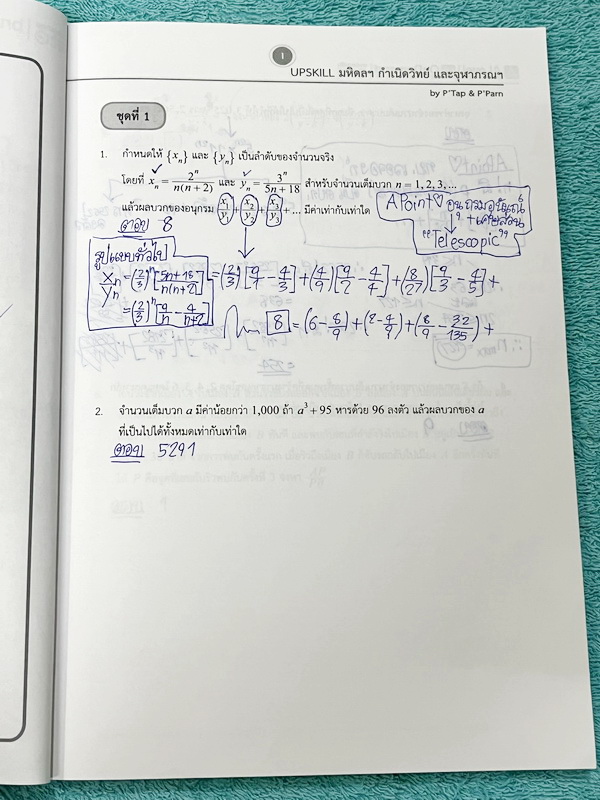 1
UPSKILL มหิดลฯ กำเนิดวิทย์ และจุฬาภรณฯ
by P'Tap & P'Parn
ชุดที่ 1
1. กำหนดให้ {xₙ} และ {yₙ} เป็นลำดับของจำนวนจริง
โดยที่ xₙ = 2ⁿ/n(n+2) และ yₙ = 3ⁿ/5n+18 สำหรับจำนวนเต็มบวก n = 1, 2, 3, ...
แล้วผลบวกของอนุกรม x₁/y₁ + x₂/y₂ + x₃/y₃ + ... มีค่าเท่ากับเท่าใด
ตอบ 8
A Point♡ อนุกรมอนันต์
+เศษส่วน
"Telescopic"
รูปแบบทั่วไป
xₙ/yₙ = (2/3)ⁿ[5n+18/n(n+2)] = (2/3)[9/1 − 4/3] + (4/9)[9/2 − 4/4] + (8/27)[9/3 − 4/5] +
= (2/3)ⁿ[9/n − 4/n+2]
8 = (6 − 8/9) + (2 − 4/9) + (8/9 − 32/135) +
2. จำนวนเต็มบวก a มีค่าน้อยกว่า 1,000 ถ้า a³ + 95 หารด้วย 96 ลงตัว แล้วผลบวกของ a
ที่เป็นไปได้ทั้งหมดเท่ากับเท่าใด
ตอบ 5291